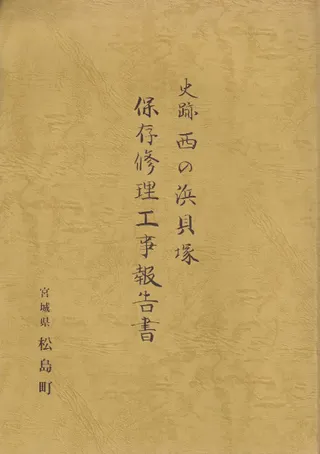 史跡 西の浜貝塚
保存修理工事報告書
宮城県 松島町